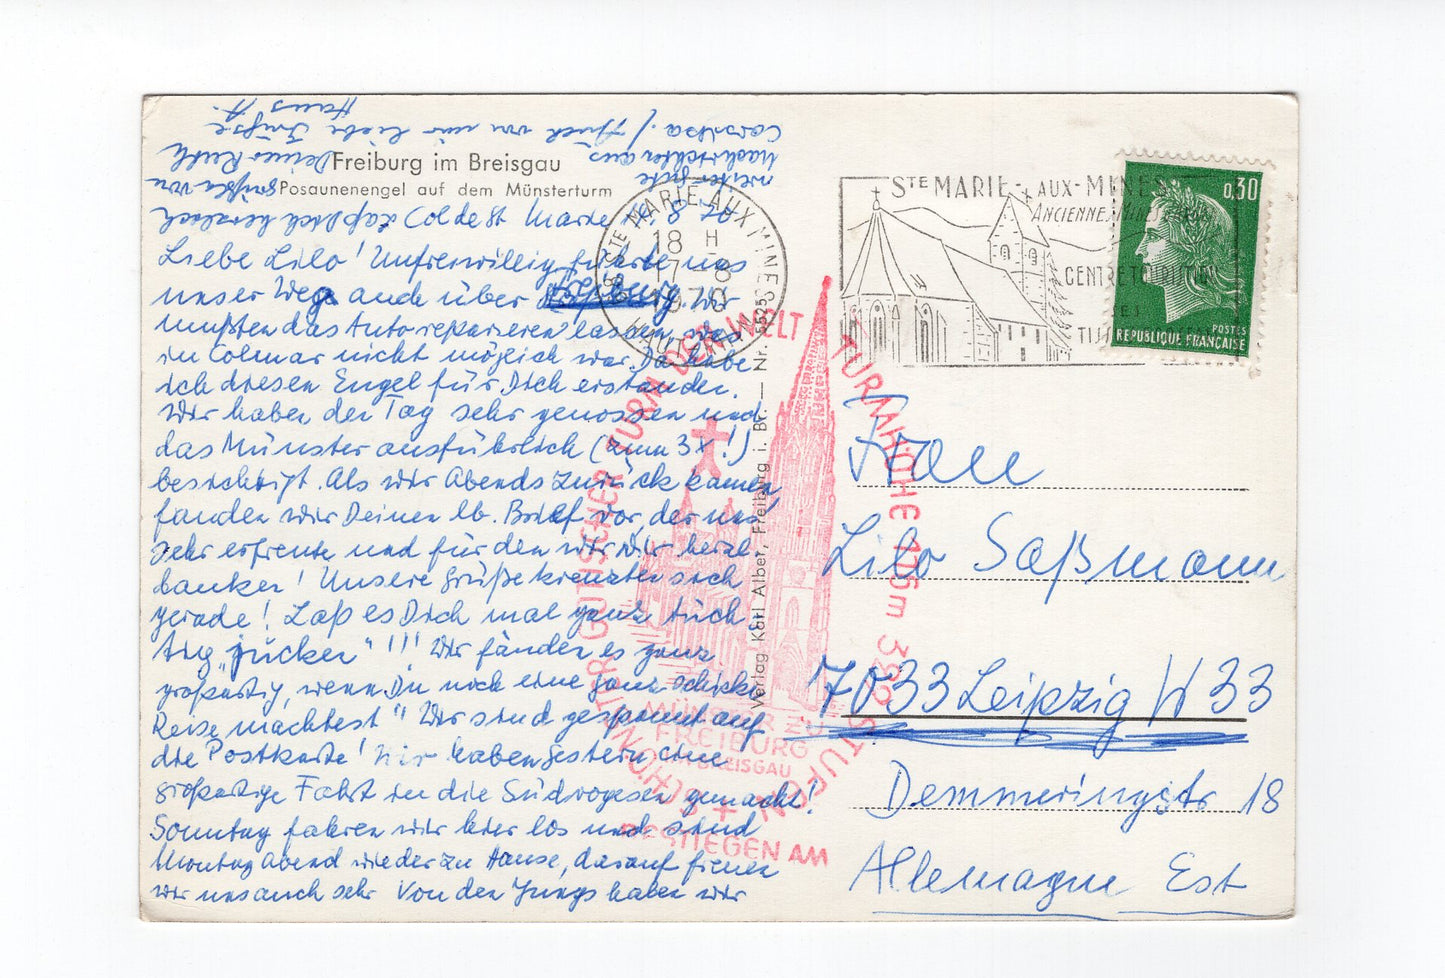 Freiburg im Breisgau
Posaunenengel auf dem Münsterturm
Col de St Marie 8 70
Liebe Lilo! Unfreiwillig führte uns
unser Weg auch über Freiburg. Wir
mußten das Auto reparieren lassen, was
in Colmar nicht möglich war. Da habe
ich diesen Engel für Dich erstanden.
Wir haben den Tag sehr genossen und
das Münster ausführlich (zum 3x!)
besichtigt. Als wir Abends zurück kamen
fanden wir Deinen lb. Brief vor, der uns
sehr erfreute und für den wir Dir herzl.
danken! Unsere Grüße kreuzten sich
gerade! Laß es Dich mal ganz tüch
tig „jucken"!!! Wir fänden es ganz
großartig, wenn Du noch eine ganz schicke
Reise machtest" Wir sind gespannt auf
die Postkarte! Wir haben gestern eine
großartige Fahrt in die Südvogesen gemacht!
Sonntag fahren wir hier los und sind
Montag Abend wieder zu Hause, darauf freuen
wir uns auch sehr. Von den Jungs haben wir
weiter gute
Nachrichten aus
Corsika. / Auch von mir liebe Grüße
Hans
Laß Dich herzlich
grüßen von
Deiner Ruth
Verlag Karl Alber, Freiburg i. Br. — Nr. 5525
STE MARIE AUX MINES
18 H
7-8
1970
HAUT RHIN
68
STE MARIE-AUX-MINES
ANCIENNES MINES
CENTRE TOURI
ET
TISS
0,30
POSTES
REPUBLIQUE FRANÇAISE
SCHÖNSTER GOTISCHER TURM DER WELT
TURMHÖHE 116m 328 STUFEN
MÜNSTER ZU
FREIBURG
IM BREISGAU
BESTIEGEN AM
Frau
Lilo Saßmann
7033 Leipzig W 33
Demmeringstr 18
Allemagne Est